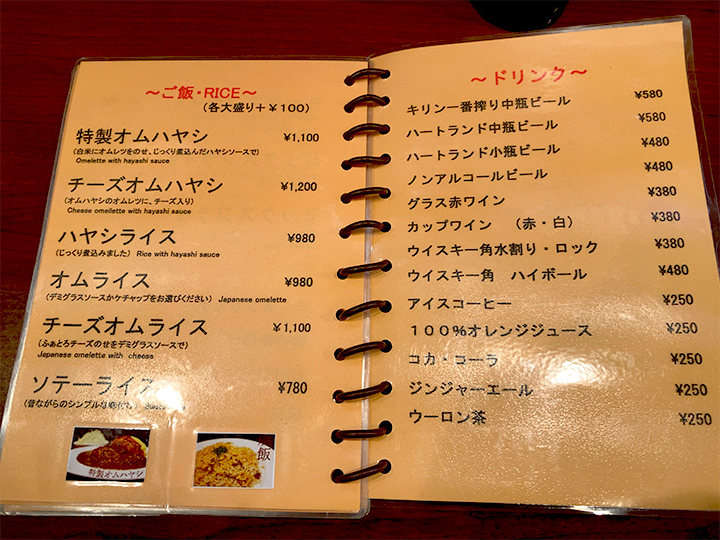 ～ご飯・RICE～
(各大盛り＋￥100)
特製オムハヤシ ¥1,100
(白米にオムレツをのせ、じっくり煮込んだハヤシソースで)
Omelette with hayashi sauce
チーズオムハヤシ ¥1,200
(オムハヤシのオムレツに、チーズ入り)
Cheese omellette with hayashi sauce
ハヤシライス ¥980
(じっくり煮込みました) Rice with hayashi sauce
オムライス ¥980
(デミグラスソースかケチャップをお選びください) Japanese omelette
チーズオムライス ¥1,100
(ふぁとろチーズのせをデミグラスソースで)
Japanese omelette with cheese
ソテーライス ¥780
(昔ながらのシンプルな
特製オムハヤシ
飯
～ドリンク～
キリン一番搾り中瓶ビール ¥580
ハートランド中瓶ビール ¥580
ハートランド小瓶ビール ¥480
ノンアルコールビール ¥480
グラス赤ワイン ¥380
カップワイン （赤・白） ¥380
ウイスキー角水割り・ロック ¥380
ウイスキー角 ハイボール ¥480
アイスコーヒー ¥250
１００％オレンジジュース ¥250
コカ・コーラ ¥250
ジンジャーエール ¥250
ウーロン茶 ¥250